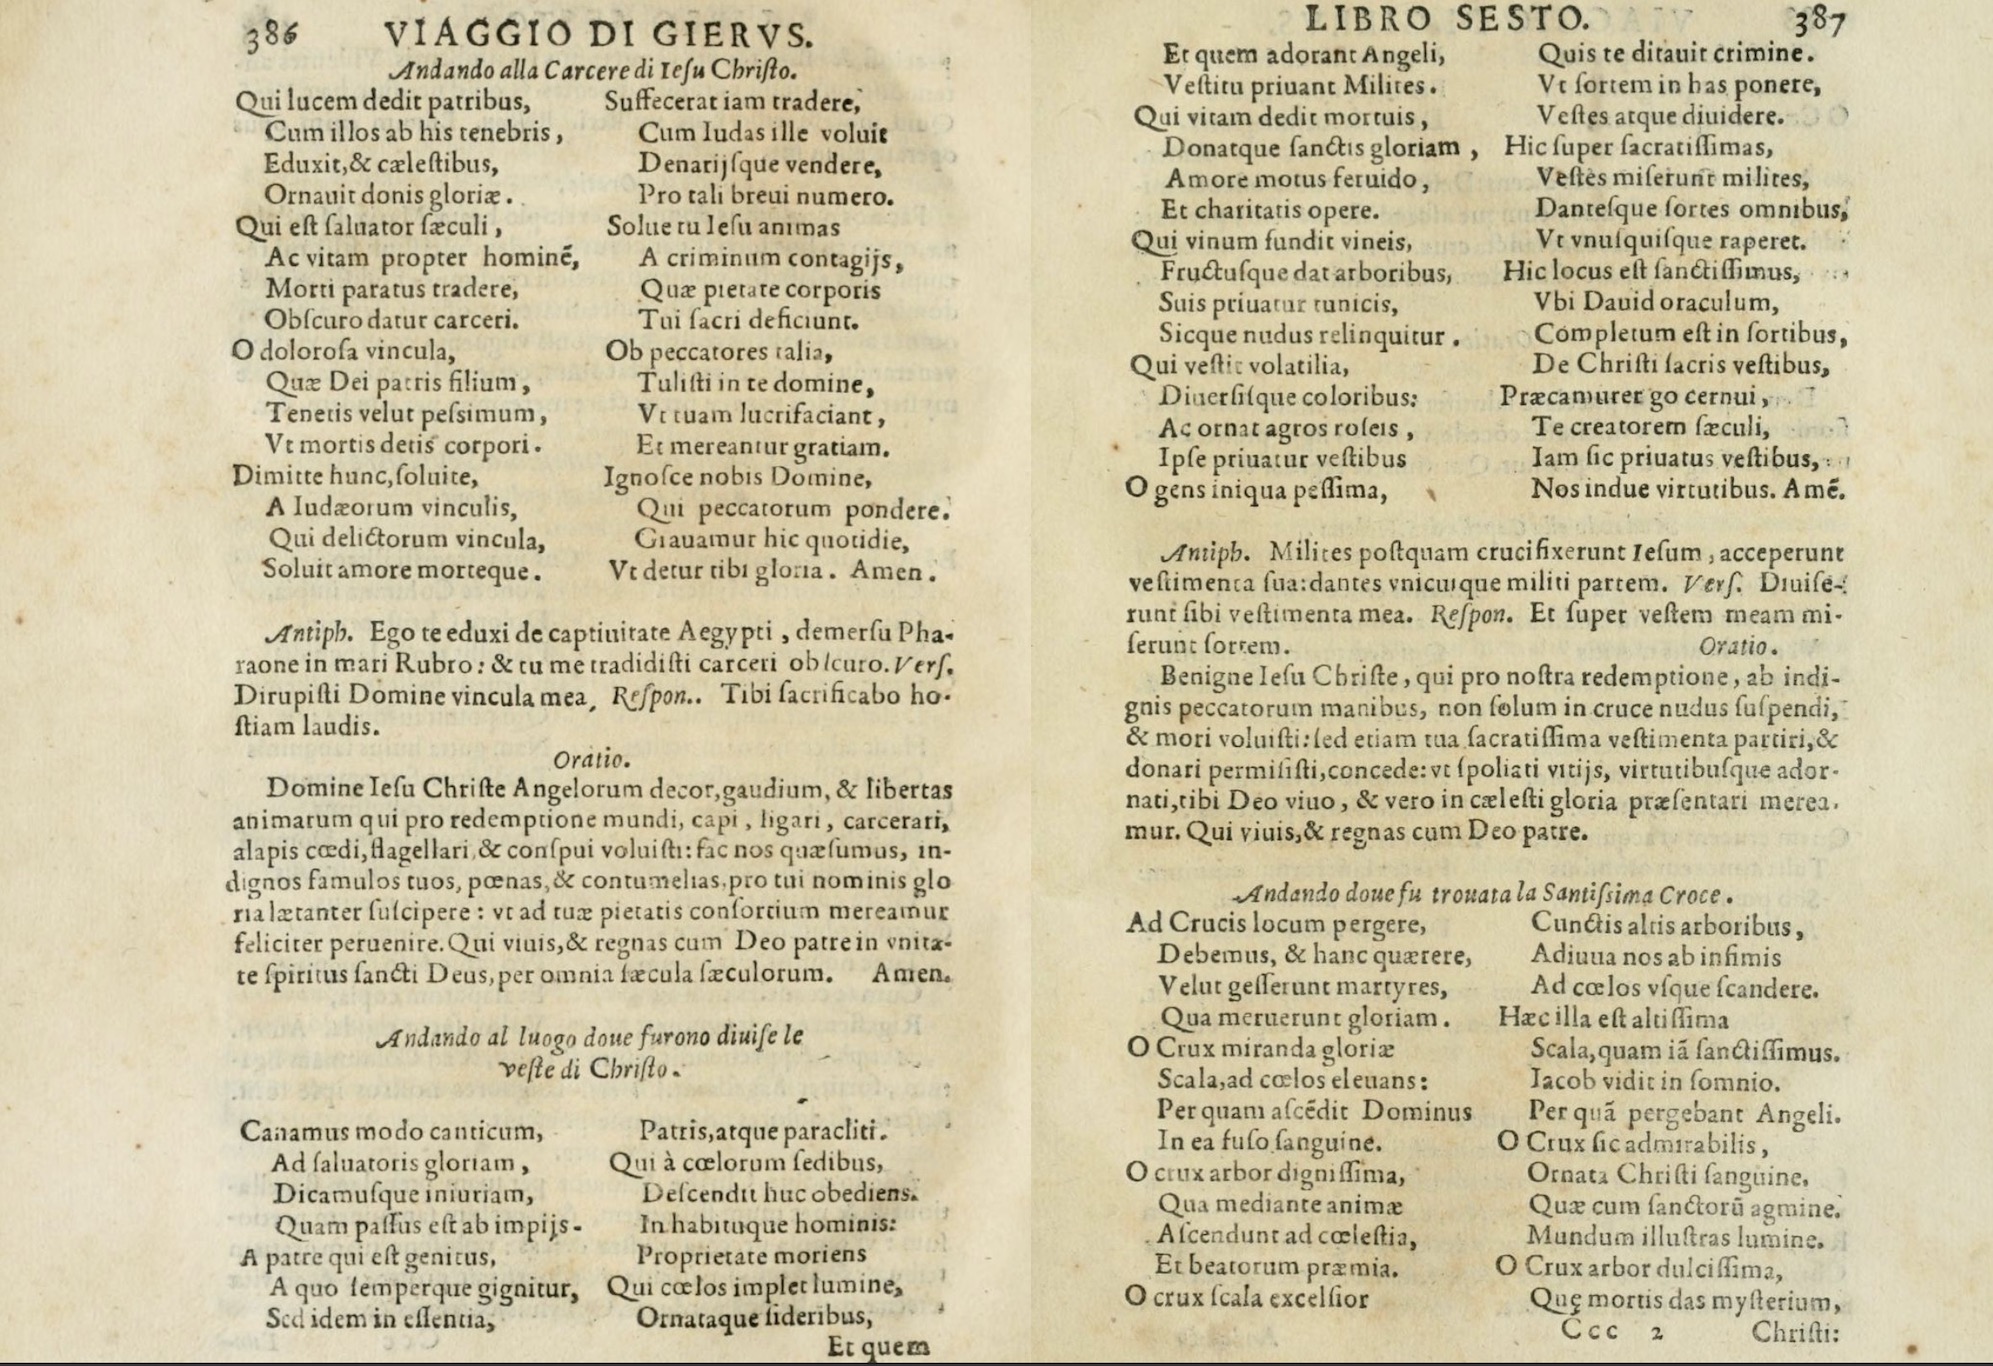 386 VIAGGIO DI GIERVS.
Andando alla Carcere di Ieſu Chriſto.
Qui lucem dedit patribus,
Cum illos ab his tenebris,
Eduxit,& cæleſtibus,
Ornauit donis gloriæ.
Qui eſt ſaluator ſæculi,
Ac vitam propter hominē,
Morti paratus tradere,
Obſcuro datur carceri.
O doloroſa vincula,
Quæ Dei patris filium,
Tenetis velut peſsimum,
Vt mortis detis corpori.
Dimitte hunc, ſoluite,
A Iudæorum vinculis,
Qui delictorum vincula,
Soluit amore morteque.
Suffecerat iam tradere,
Cum Iudas ille voluit
Denarijſque vendere,
Pro tali breui numero.
Solue tu Ieſu animas
A criminum contagijs,
Quæ pietate corporis
Tui ſacri deficiunt.
Ob peccatores talia,
Tuliſti in te domine,
Vt tuam lucrifaciant,
Et mereantur gratiam.
Ignoſce nobis Domine,
Qui peccatorum pondere.
Grauamur hic quotidie,
Vt detur tibi gloria. Amen.
Antiph. Ego te eduxi de captiuitate Aegypti, demerſu Pha-
raone in mari Rubro: & tu me tradidiſti carceri obſcuro. Verſ.
Dirupiſti Domine vincula mea, Reſpon.. Tibi ſacrificabo ho-
ſtiam laudis.
Oratio.
Domine Ieſu Chriſte Angelorum decor, gaudium, & libertas
animarum qui pro redemptione mundi, capi, ligari, carcerari,
alapis cœdi, flagellari, & conſpui voluiſti: fac nos quæſumus, in-
dignos famulos tuos, pœnas, & contumelias, pro tui nominis glo
ria lætanter ſuſcipere: vt ad tuæ pietatis conſortium mereamur
feliciter peruenire. Qui viuis, & regnas cum Deo patre in vnita-
te ſpiritus ſancti Deus, per omnia ſæcula ſæculorum. Amen.
Andando al luogo doue furono diuiſe le
veſte di Chriſto.
Canamus modo canticum,
Ad ſaluatoris gloriam,
Dicamuſque iniuriam,
Quam paſſus eſt ab impijs.
A patre qui eſt genitus,
A quo ſemperque gignitur,
Sed idem in eſſentia,
Patris, atque paracliti.
Qui à cœlorum ſedibus,
Deſcendit huc obediens.
In habituque hominis:
Proprietate moriens
Qui cœlos implet lumine,
Ornataque ſideribus,
Et quem
LIBRO SESTO. 387
Et quem adorant Angeli,
Veſtitu priuant Milites.
Qui vitam dedit mortuis,
Donatque ſanctis gloriam,
Amore motus feruido,
Et charitatis opere.
Qui vinum fundit vineis,
Fructuſque dat arboribus,
Suis priuatur tunicis,
Sicque nudus relinquitur.
Qui veſtit volatilia,
Diuerſiſque coloribus:
Ac ornat agros roſeis,
Ipſe priuatur veſtibus
O gens iniqua peſſima,
Quis te ditauit crimine.
Vt ſortem in has ponere,
Veſtes atque diuidere.
Hic ſuper ſacratiſſimas,
Veſtes miſerunt milites,
Данteſque ſortes omnibus,
Vt vnuſquiſque raperet.
Hic locus eſt ſanctiſſimus,
Vbi Dauid oraculum,
Completum eſt in ſortibus,
De Chriſti ſacris veſtibus,
Præcamuret go cernui,
Te creatorem ſæculi,
Iam ſic priuatus veſtibus,
Nos indue virtutibus. Amē.
Antiph. Milites poſtquam crucifixerunt Ieſum, acceperunt
veſtimenta ſua: dantes vnicuique militi partem. Verſ. Diuiſe-
runt ſibi veſtimenta mea. Reſpon. Et ſuper veſtem meam mi-
ſerunt ſortem. Oratio.
Benigne Ieſu Chriſte, qui pro noſtra redemptione, ab indi-
gnis peccatorum manibus, non ſolum in cruce nudus ſuſpendi,
& mori voluiſti: ſed etiam tua ſacratiſſima veſtimenta partiri, &
donari permiſiſti, concede: vt ſpoliati vitijs, virtutibuſque ador-
nati, tibi Deo viuo, & vero in cæleſti gloria præſentari merea.
mur. Qui viuis, & regnas cum Deo patre.
Andando doue fu trouata la Santiſsima Croce.
Ad Crucis locum pergere,
Debemus, & hanc quærere,
Velut geſſerunt martyres,
Qua meruerunt gloriam.
O Crux miranda gloriæ
Scala, ad cœlos eleuans:
Per quam aſcēdit Dominus
In ea fuſo ſanguine.
O crux arbor digniſſima,
Qua mediante animæ
Aſcendunt ad cœleſtia,
Et beatorum præmia.
O crux ſcala excelſior
Cunctis altis arboribus,
Adiuua nos ab infimis
Ad cœlos vſque ſcandere.
Hæc illa eſt altiſſima
Scala, quam iā ſanctiſſimus.
Iacob vidit in ſomnio.
Per quā pergebant Angeli.
O Crux ſic admirabilis,
Ornata Chriſti ſanguine.
Quæ cum ſanctorū agmine.
Mundum illuſtras lumine.
O Crux arbor dulciſſima,
Quę mortis das myſterium,
Ccc 2 Chriſti: